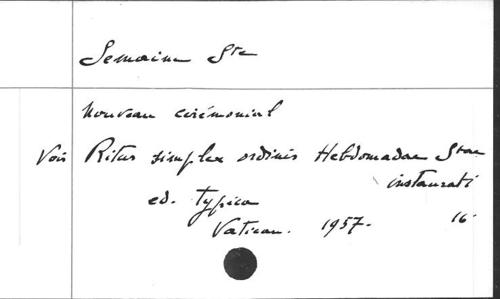 Semaine Ste
Nouveau cérémonial
Voir Ritus simplex ordinis Hebdomadae Stae
instaurati
ed. typica
Vatican. 1957. 16.